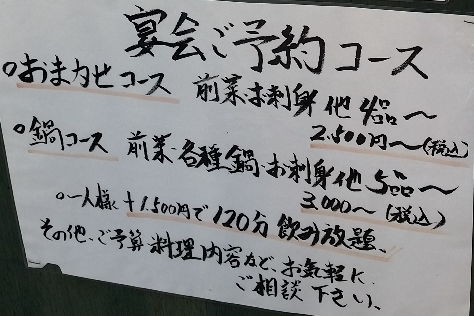 宴会ご予約コース
○おまかせコース 前菜・お刺身 他4品～
2,500円～(税込)
○鍋コース 前菜・各種鍋・お刺身他5品～
3,000～(税込)
○一人様+1,500円で120分飲み放題、
その他、ご予算料理内容など、お気軽に
ご相談下さい、